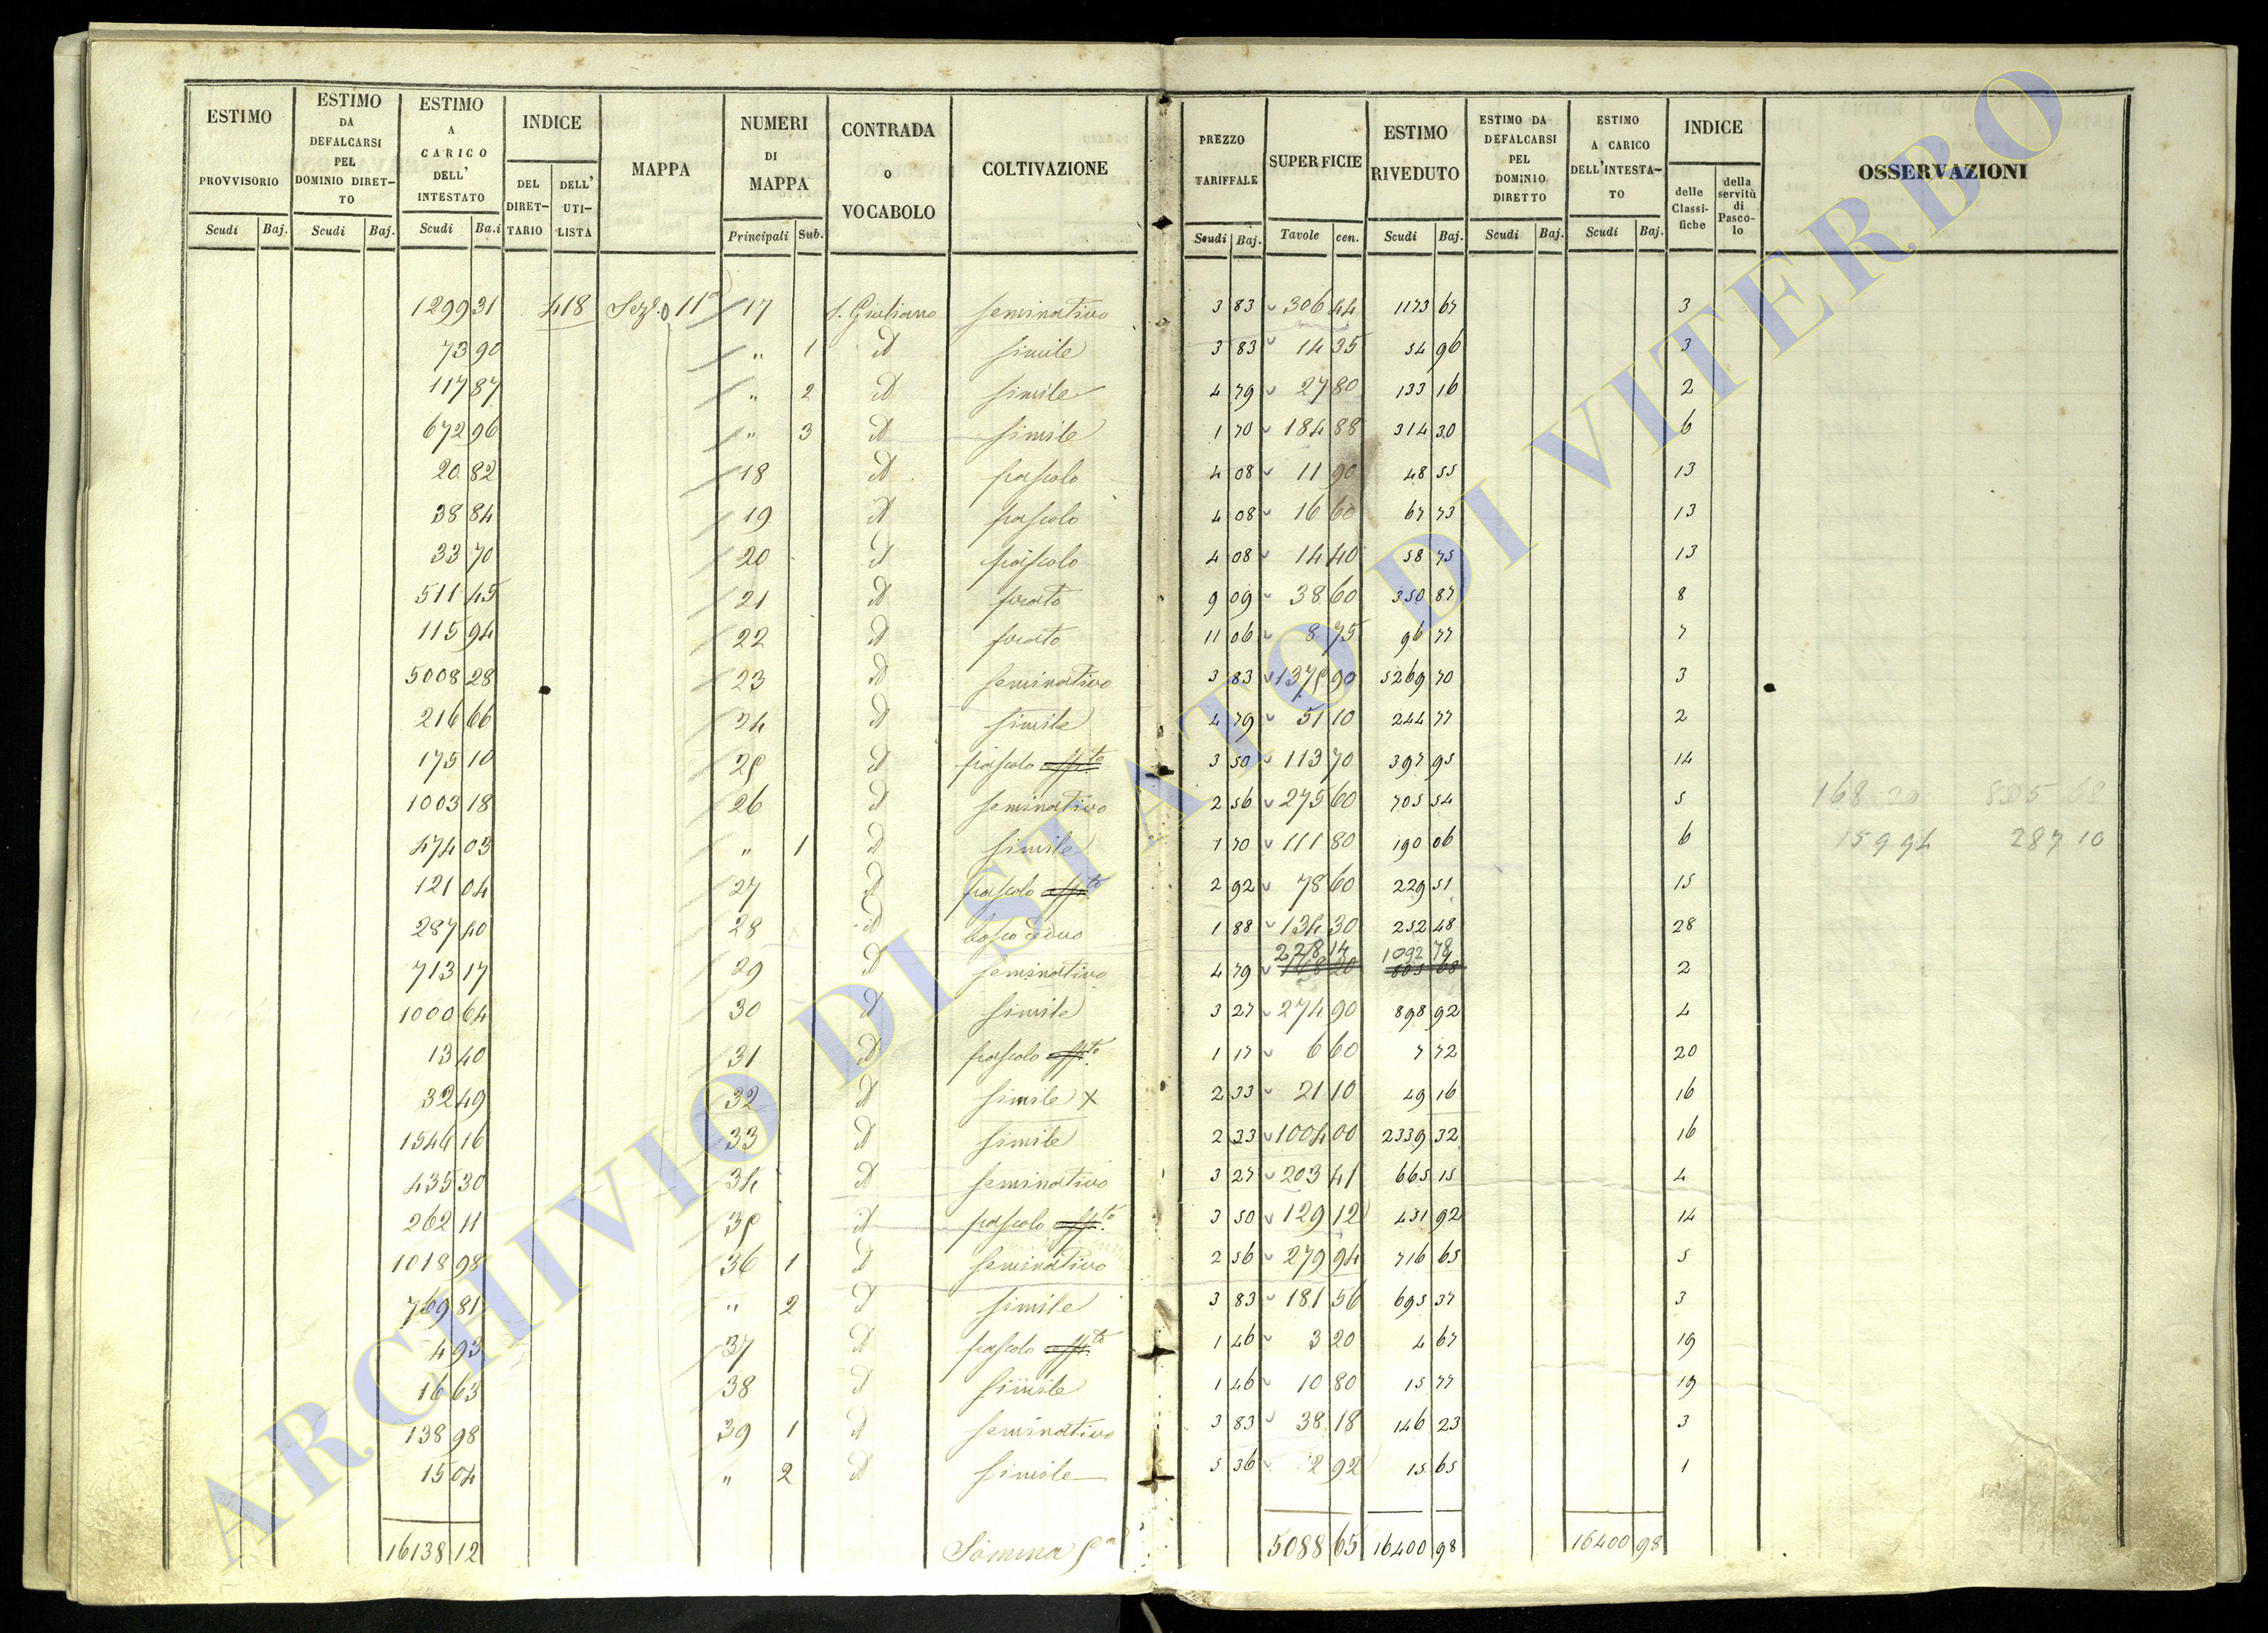 ESTIMO PROVVISORIO Scudi Baj. ESTIMO DA DEFALCARSI PEL DOMINIO DIRETTO Scudi Baj. ESTIMO A CARICO DELL' INTESTATO Scudi Ba.i INDICE DEL DIRETTARIO DELL' UTILISTA MAPPA NUMERI DI MAPPA Principali Sub. CONTRADA o VOCABOLO COLTIVAZIONE PREZZO TARIFFALE Scudi Baj. SUPERFICIE Tavole cen. ESTIMO RIVEDUTO Scudi Baj. ESTIMO DA DEFALCARSI PEL DOMINIO DIRETTO Scudi Baj. ESTIMO A CARICO DELL'INTESTATO Scudi Baj. INDICE delle Classifiche della servitù di Pascolo OSSERVAZIONI
1299 31 418 Sez. 11a 17 S. Giuliano seminativo 3 83 306 44 1173 67 3
73 90 " 1 d simile 3 83 14 35 54 96 3
117 87 " 2 d simile 4 79 27 80 133 16 2
672 96 " 3 d simile 1 70 184 88 314 30 6
20 82 18 d pascolo 4 08 11 90 48 55 13
38 84 19 d pascolo 4 08 16 60 67 73 13
33 70 20 d pascolo 4 08 14 40 58 75 13
511 45 21 d prato 9 09 38 60 350 87 8
115 94 22 d prato 11 06 8 75 96 77 7
5008 28 23 d seminativo 3 83 1375 90 5269 70 3
216 66 24 d simile 4 79 51 10 244 77 2
175 10 25 d pascolo 3 50 113 70 397 95 14
1003 18 26 d seminativo 2 56 275 60 705 54 5 168 20 805 68
474 03 " 1 d simile 1 70 111 80 190 06 6 159 94 287 10
121 04 27 d pascolo 2 92 78 60 229 51 15
287 40 28 d bosco ceduo 1 88 134 30 252 48 28
713 17 29 d seminativo 4 79 228 14 168 20 1092 78 805 68 2
1000 64 30 d simile 3 27 274 90 898 92 4
13 40 31 d pascolo 1 17 6 60 7 72 20
32 49 32 d simile x 2 33 21 10 49 16 16
1546 16 33 d simile 2 33 1004 00 2339 32 16
435 30 34 d seminativo 3 27 203 41 665 15 4
262 11 35 d pascolo 3 50 129 12 451 92 14
1018 98 36 1 d seminativo 2 56 279 94 716 65 5
769 81 " 2 d simile 3 83 181 56 695 37 3
4 93 37 d pascolo 1 46 3 20 4 67 19
16 63 38 d simile 1 46 10 80 15 77 19
138 98 39 1 d seminativo 3 83 38 18 146 23 3
15 04 " 2 d simile 5 36 2 92 15 65 1
16138 12 Somma 5088 65 16400 98 16400 98
ARCHIVIO DI STATO DI VITERBO